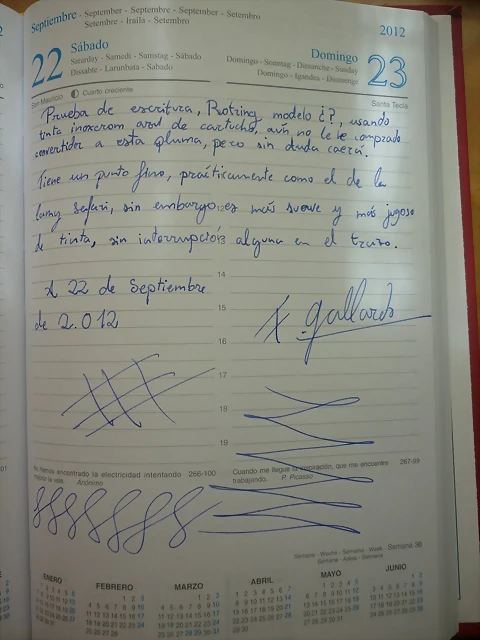 Septiembre - September - Septembre - September - Setembro
Setembre - Iraila - Setembro
2012
22 Sábado
Saturday - Samedi - Samstag - Sábado
Dissabte - Larunbata - Sabado
Domingo 23
Domingo - Sonntag - Dimanche - Sunday
Domingo - Igandea - Diumenge
San Mauricio Cuarto creciente
Santa Tecla
Prueba de escritura, Rotring modelo ¿?, usando
tinta inoxcrom azul de cartucho, aún no le he comprado
convertidor a esta pluma, pero sin duda caerá.
Tiene un punto fino, prácticamente como el de la
lamy safari, sin embargo es más suave y más jugoso
de tinta, sin interrupción alguna en el trazo.
12
13
14
A 22 de Septiembre
de 2.012
15
X. Gallardo
16
17
18
19
hemos encontrado la electricidad intentando 266-100
mejorar la vela. Anónimo
Cuando me llegue la inspiración, que me encuentre 267-99
trabajando. P. Picasso
Semana - Woche - Semaine - Week Semana 38
Setmana - Astea - Semana
ENERO
FEBRERO
MARZO
ABRIL
MAYO
JUNIO